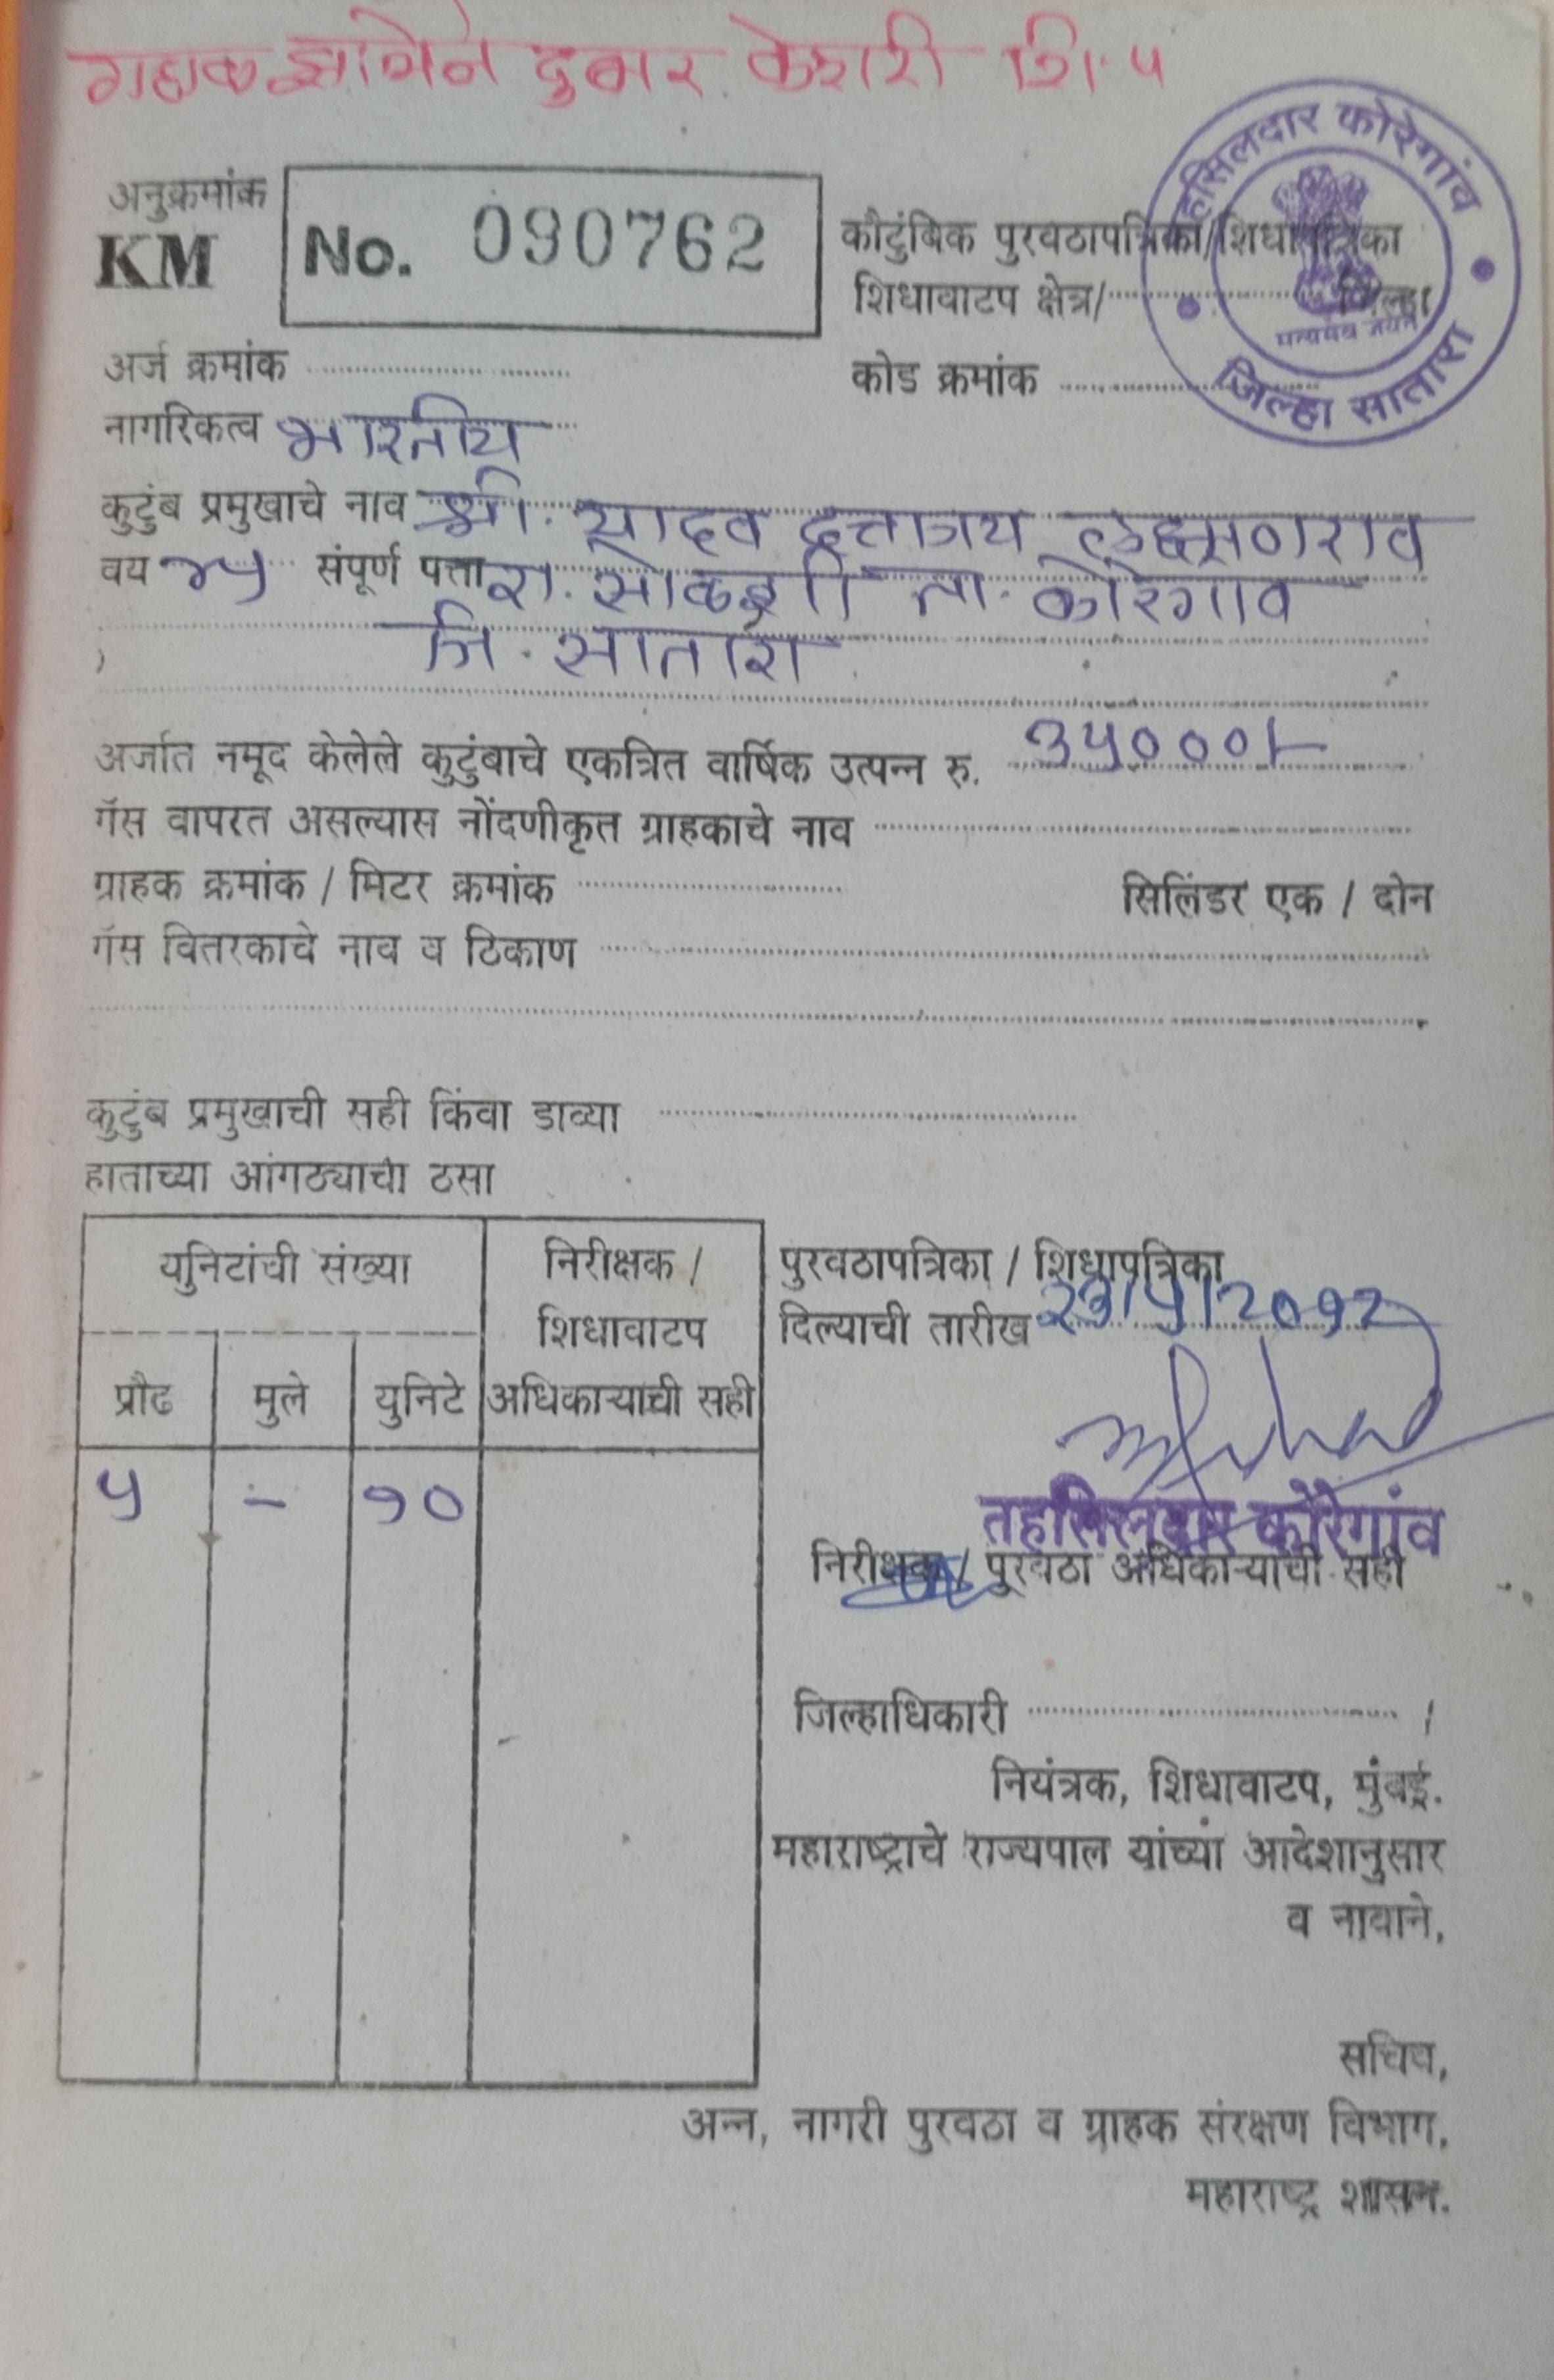 गहाळ झालेने दुबार केशरी शि.प
तहसिलदार कोरेगांव
सत्यमेव जयते
जिल्हा सातारा
अनुक्रमांक
KM
No. 090762
कौटुंबिक पुरवठापत्रिका/शिधापत्रिका
शिधावाटप क्षेत्र/ जिल्हा
अर्ज क्रमांक
कोड क्रमांक
नागरिकत्व भारतीय
कुटुंब प्रमुखाचे नाव श्री. यादव दत्तात्रय लक्ष्मणराव
वय ४५ संपूर्ण पत्ता रा. सोळशी ता. कोरेगाव
जि. सातारा
अर्जात नमूद केलेले कुटुंबाचे एकत्रित वार्षिक उत्पन्न रु. ३५०००/-
गॅस वापरत असल्यास नोंदणीकृत ग्राहकाचे नाव
ग्राहक क्रमांक / मिटर क्रमांक सिलिंडर एक / दोन
गॅस वितरकाचे नाव व ठिकाण
कुटुंब प्रमुखाची सही किंवा डाव्या
हाताच्या आंगठ्याचा ठसा
युनिटांची संख्या
निरीक्षक /
शिधावाटप
अधिकाऱ्याची सही
प्रौढ मुले युनिटे
५ – १०
पुरवठापत्रिका / शिधापत्रिका
दिल्याची तारीख २३/५/२०१२
तहसिलदार कोरेगांव
निरीक्षक / पुरवठा अधिकाऱ्याची सही
जिल्हाधिकारी /
नियंत्रक, शिधावाटप, मुंबई.
महाराष्ट्राचे राज्यपाल यांच्या आदेशानुसार
व नावाने,
सचिव,
अन्न, नागरी पुरवठा व ग्राहक संरक्षण विभाग,
महाराष्ट्र शासन.